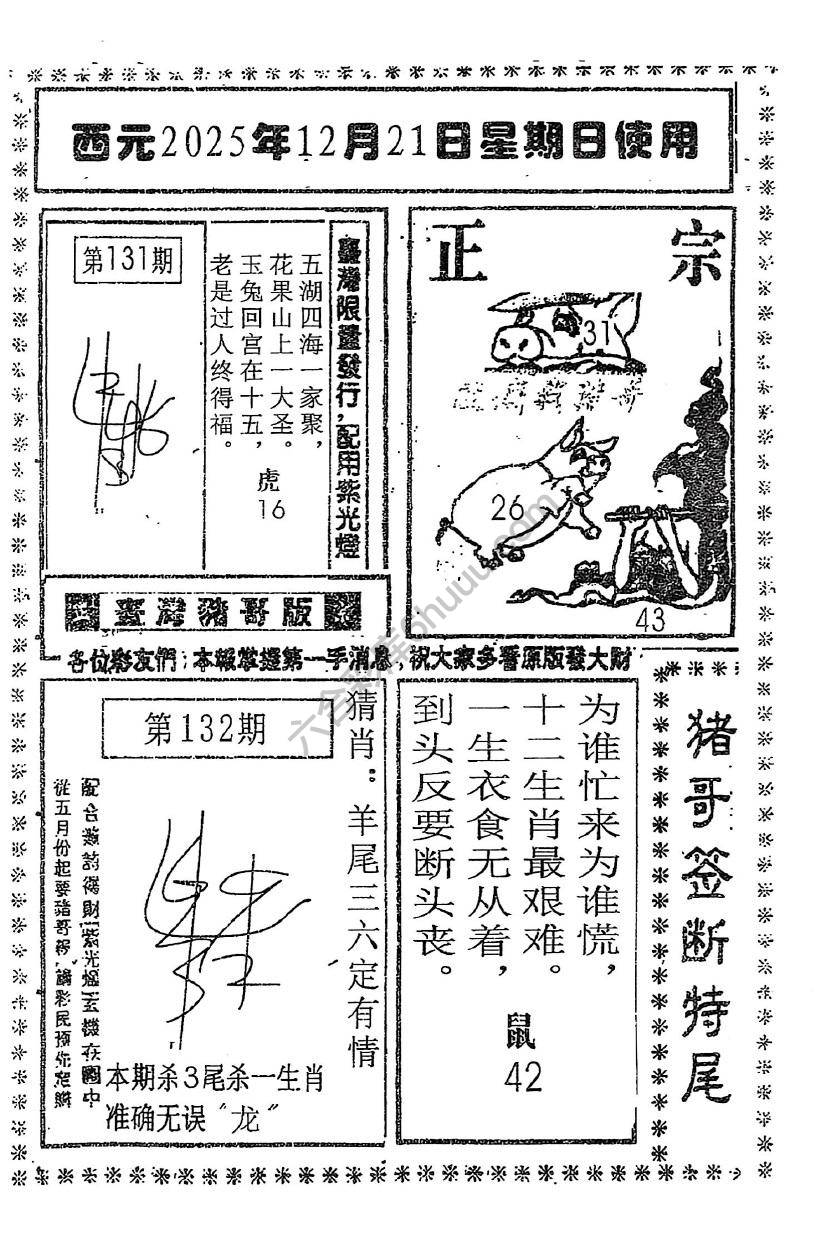 西元2025年12月21日星期日使用
第131期
臺灣限量發行，配用紫光燈
五湖四海一家聚，
花果山上一大圣。
玉兔回宫在十五，
老是过人终得福。
虎
16
正宗
31
26
43
臺灣豬哥版
各位彩友們：本報掌握第一手消息，祝大家多看原版發大財
第132期
猜肖：羊尾三六定有情
從五月份起要豬哥報
本期杀3尾杀一生肖
准确无误“龙”
为谁忙来为谁慌，
十二生肖最艰难。
一生衣食无从着，
到头反要断头丧。
鼠
42
猪哥签断特尾